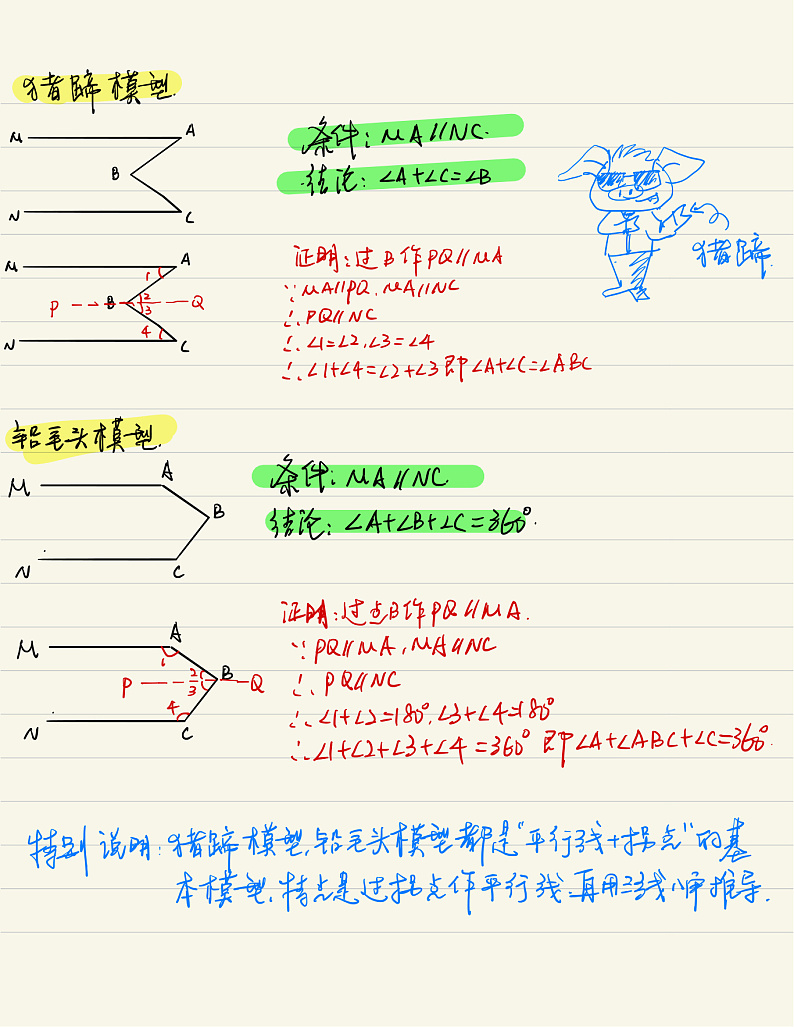 猪蹄模型
M A
B
N C
条件：MA∥NC.
结论：∠A+∠C=∠B
猪蹄
M A
1
P B 2 Q
3
4
N C
证明：过B作PQ∥MA
∵MA∥PQ，MA∥NC
∴PQ∥NC
∴∠1=∠2，∠3=∠4
∴∠1+∠4=∠2+∠3即∠A+∠C=∠ABC
铅笔头模型.
M A
B
N C
条件：MA∥NC
结论：∠A+∠B+∠C=360°.
M A
1
P 2 B Q
3
4
N C
证明：过点B作PQ∥MA.
∵PQ∥MA，MA∥NC
∴PQ∥NC
∴∠1+∠2=180°，∠3+∠4=180°
∴∠1+∠2+∠3+∠4=360° 即∠A+∠ABC+∠C=360°.
特别说明：猪蹄模型，铅笔头模型都是“平行线+拐点”的基
本模型，特点是过拐点作平行线，再用三线八角推导.